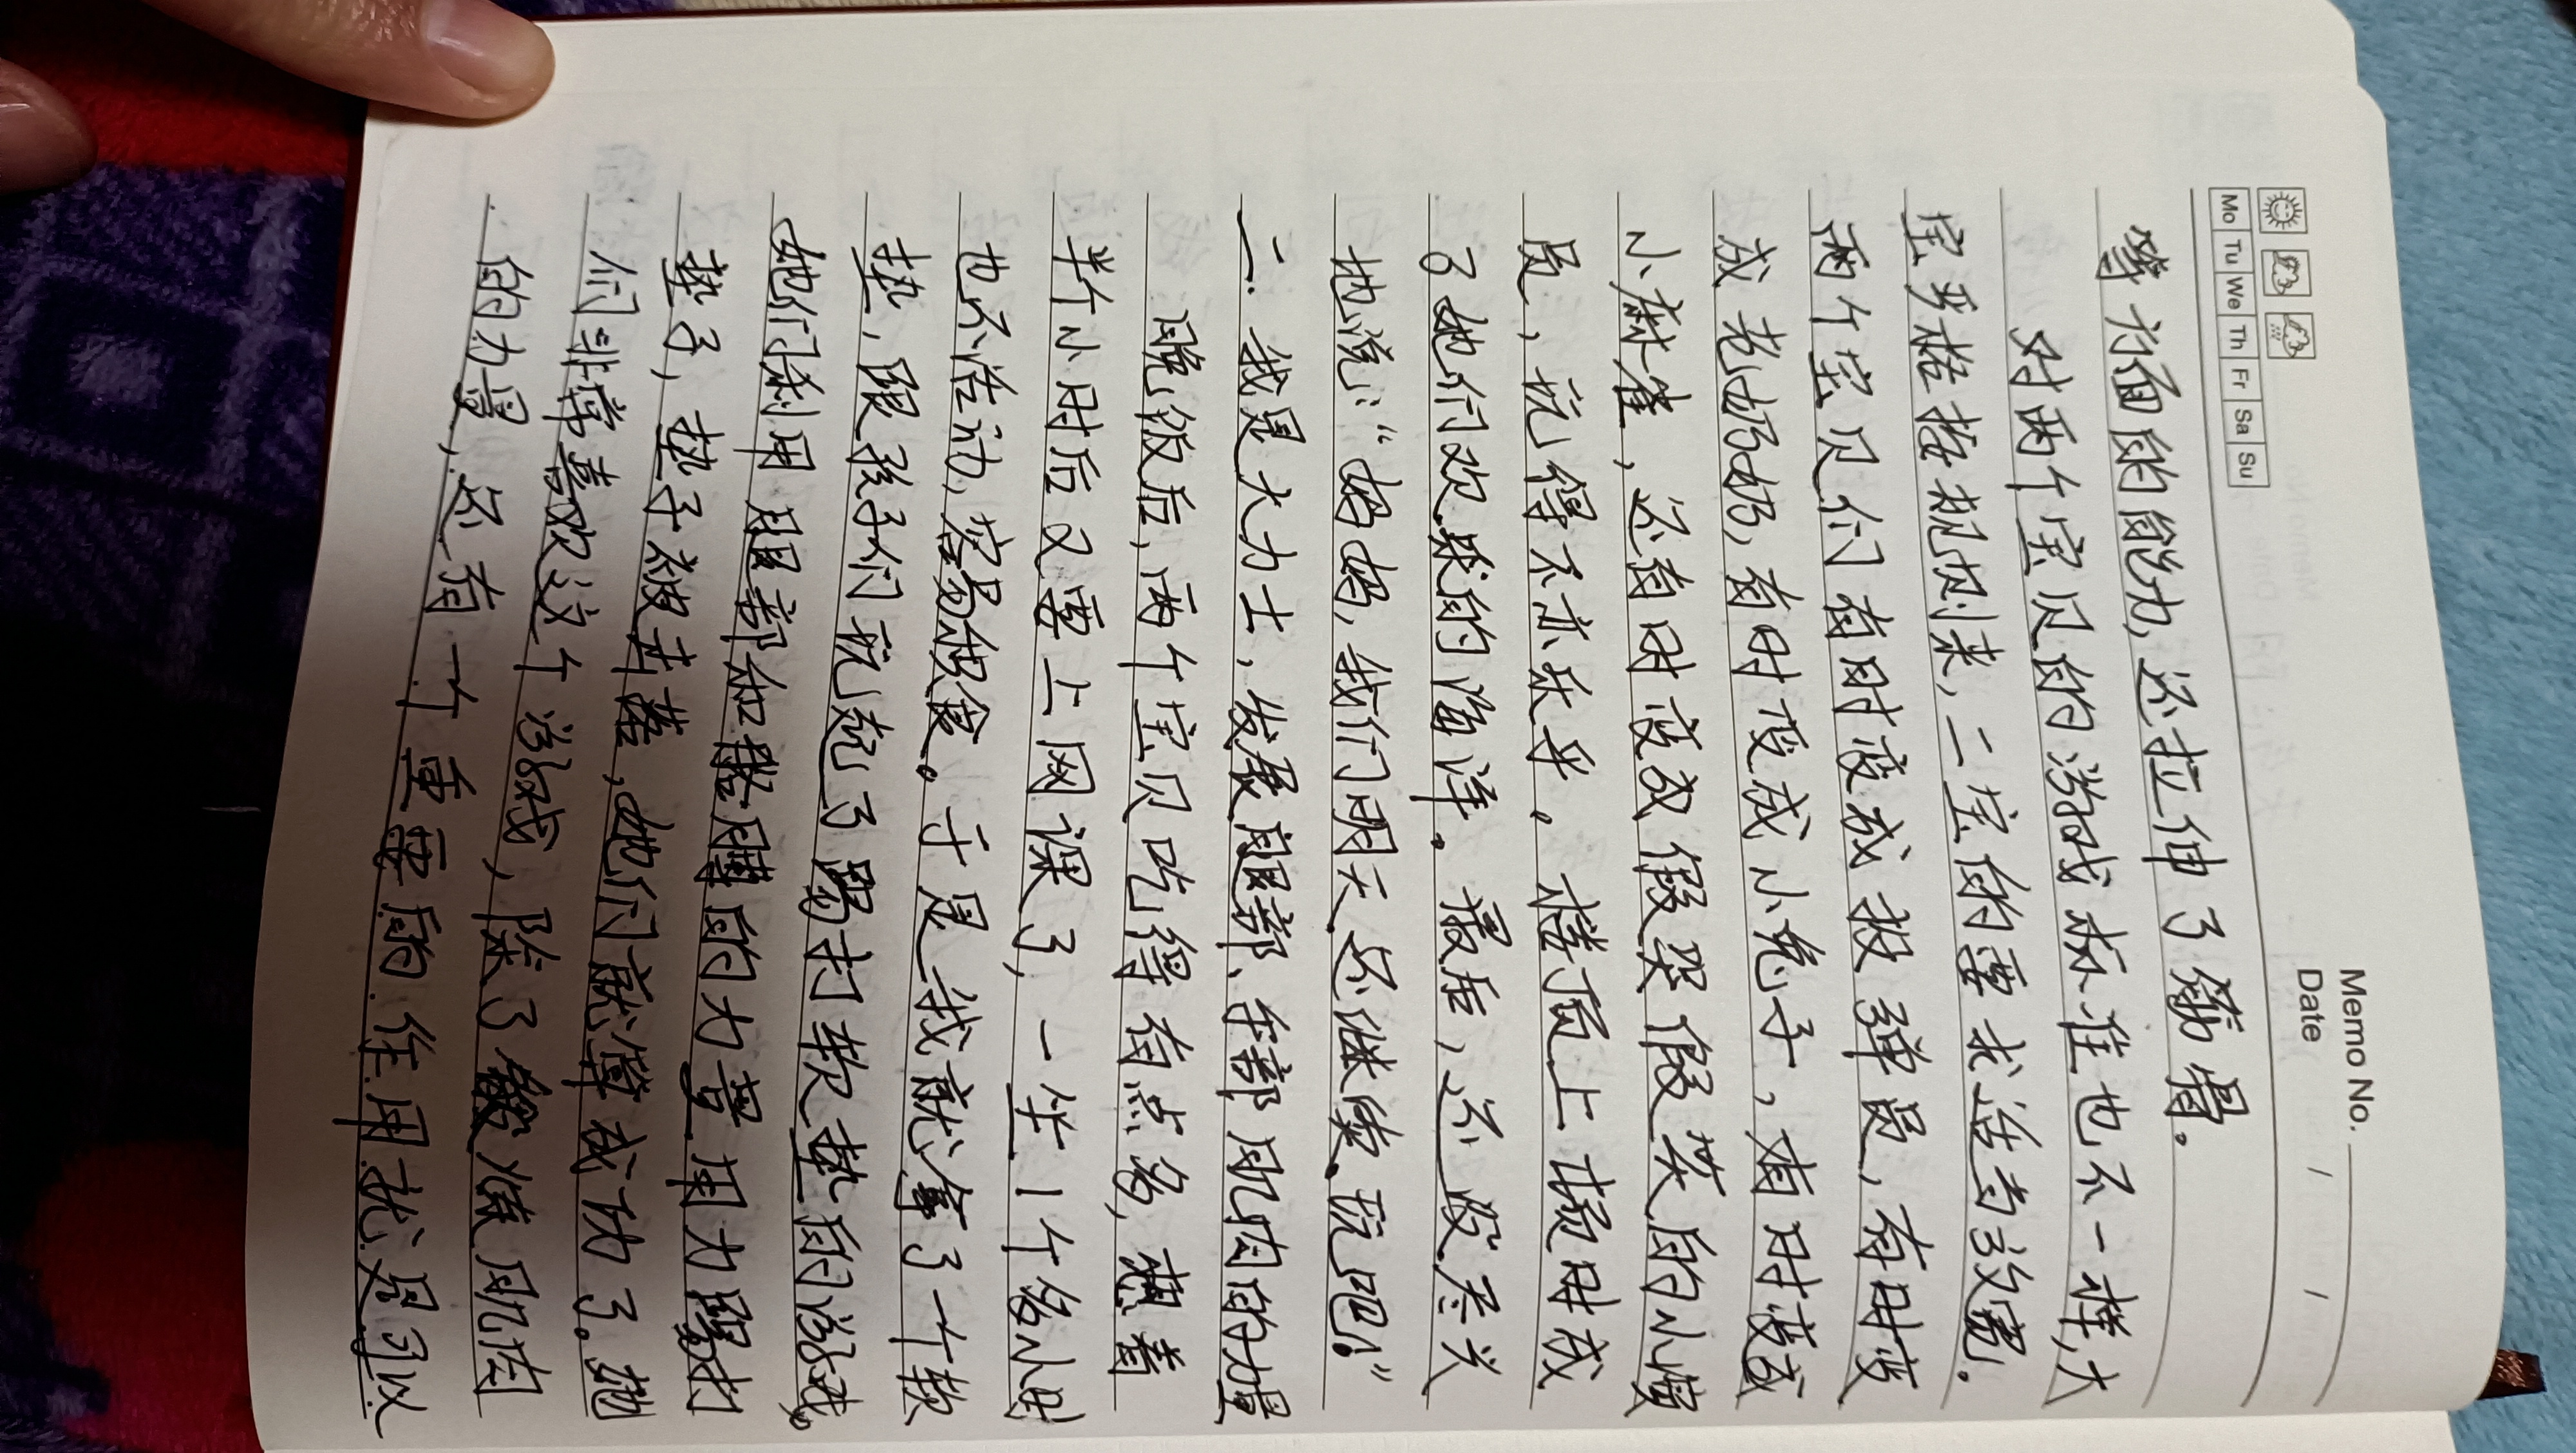 Memo No.
Mo Tu We Th Fr Sa Su
Date / /
等方面的能力,还拉伸了筋骨。
对两个宝贝的游戏标准也不一样,大
宝严格按规则来,二宝的要求适当放宽。
两个宝贝们有时变成报弹员,有时变
成老奶奶,有时变成小兔子,有时变成
小麻雀,还有时变成假哭假笑的小演
员,玩得不亦乐乎。楼顶上场时成
了她们欢跃的海洋。最后,还没尽兴
地说:“妈妈,我们明天还继续玩吧!”
二.我是大力士,发展腿部、手部肌肉的力量
晚饭后,两个宝贝吃得有点多,想着
半个小时后又要上网课了,一坐1个多小时
也不活动,容易积食。于是我就拿了一个软
垫,跟孩子们玩起了踢打软垫的游戏。
她们利用腿部和胳膊的力量用力踢打
垫子,垫子被击落,她们就算成功了。她
们非常喜欢这个游戏,除了锻炼肌肉
的力量,还有一个重要的作用就是可以